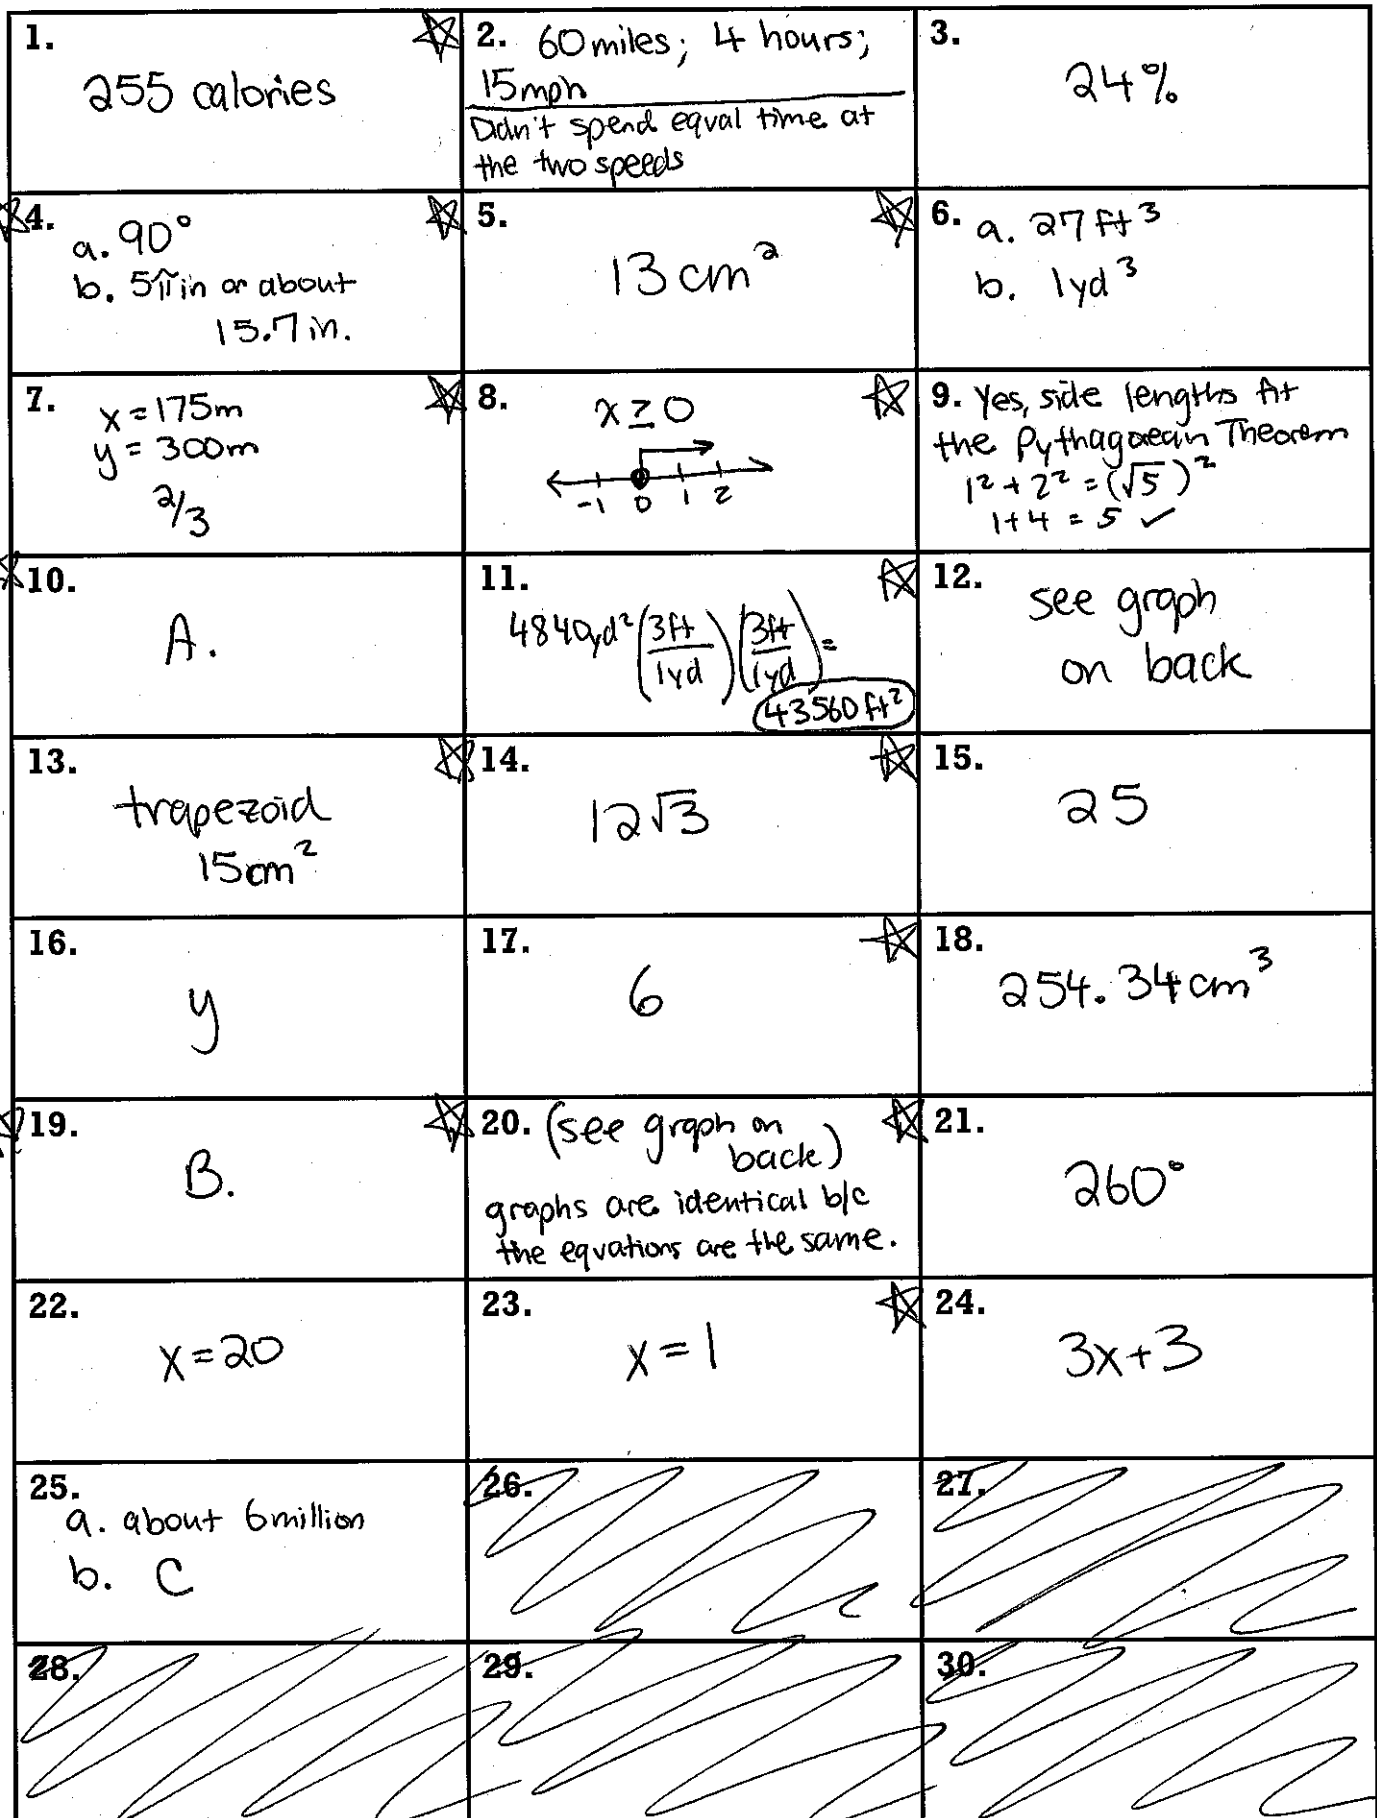 1.
255 calories
2. 60 miles; 4 hours;
15mph
Didn't spend equal time at
the two speeds
3.
24%
4. a. 90°
b. 5π in or about
15.7 in.
5.
13 cm²
6. a. 27 ft³
b. 1yd³
7. x = 175m
y = 300m
2/3
8. x ≥ 0
-1 0 1 2
9. Yes, side lengths fit
the Pythagorean Theorem
1² + 2² = (√5)²
1 + 4 = 5 ✓
10.
A.
11.
4840yd² (3ft/1yd)(3ft/1yd) =
43560 ft²
12. see graph
on back
13.
trapezoid
15cm²
14.
12√3
15.
25
16.
y
17.
6
18.
254.34 cm³
19.
B.
20. (see graph on
back)
graphs are identical b/c
the equations are the same.
21.
260°
22.
x = 20
23.
x = 1
24.
3x+3
25.
a. about 6 million
b. C
26.
27.
28.
29.
30.